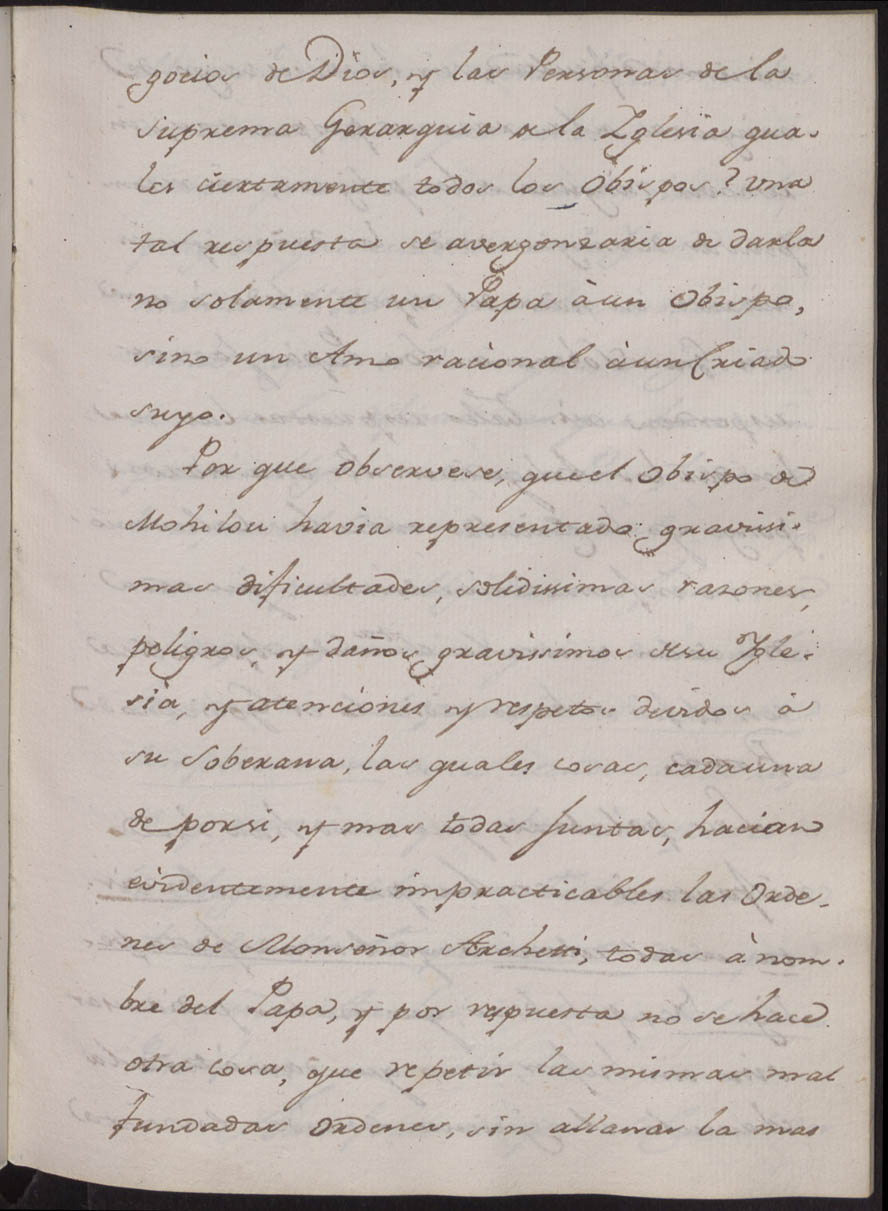 gocios de Dios, y las Personas de la
suprema Gerarquia de la Iglesia qua-
les ciertamente todos los Obispos? Una
tal respuesta se avergonzaria de darla
no solamente un Papa à un Obispo,
sino un Amo racional à un Criado
suyo.
Por que observese, que el Obispo de
Mohilou havia representado gravissi-
mas dificultades, solidissimas razones,
peligros, y daños gravissimos de su Igle-
sia, y atenciones y respetos devidos à
su Soberana, las quales cosas, cada una
de por si, y mas todas Juntas, hacian
evidentemente impracticables las Orde-
nes de Monseñor Archetti, todas à nom-
bre del Papa, y por respuesta no se hace
otra cosa, que repetir las mismas mal
fundadas Ordenes, sin allanar la mas